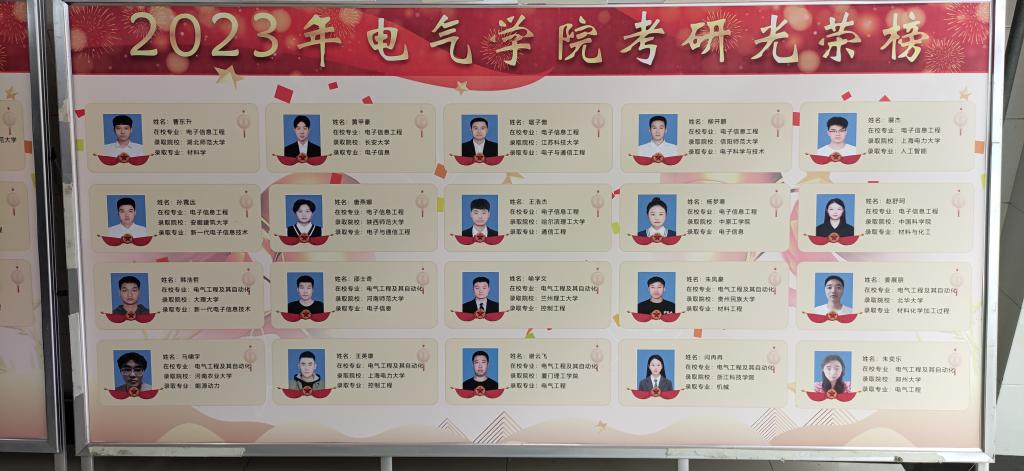 2023年电气学院考研光荣榜
姓名：曹东升
在校专业：电子信息工程
录取院校：湖北师范大学
录取专业：材料学
姓名：黄甲豪
在校专业：电子信息工程
录取院校：长安大学
录取专业：电子信息
姓名：堀子傲
在校专业：电子信息工程
录取院校：江苏科技大学
录取专业：电子与通信工程
姓名：柳开鹏
在校专业：电子信息工程
录取院校：信阳师范大学
录取专业：电子科学与技术
姓名：裴杰
在校专业：电子信息工程
录取院校：上海电力大学
录取专业：人工智能
姓名：孙霄远
在校专业：电子信息工程
录取院校：安徽建筑大学
录取专业：新一代电子信息技术
姓名：唐燕娜
在校专业：电子信息工程
录取院校：陕西师范大学
录取专业：电子与通信工程
姓名：王浩杰
在校专业：电子信息工程
录取院校：哈尔滨理工大学
录取专业：通信工程
姓名：杨梦寒
在校专业：电子信息工程
录取院校：中原工学院
录取专业：电子信息
姓名：赵舒珂
在校专业：电子信息工程
录取院校：中国科学院
录取专业：材料与化工
姓名：韩浩哲
在校专业：电气工程及其自动化
录取院校：大理大学
录取专业：新一代电子信息技术
姓名：邵士奇
在校专业：电气工程及其自动化
录取院校：河南师范大学
录取专业：电子信息
姓名：喻学文
在校专业：电气工程及其自动化
录取院校：兰州理工大学
录取专业：控制工程
姓名：朱凤豪
在校专业：电气工程及其自动化
录取院校：贵州民族大学
录取专业：材料工程
姓名：姜展丽
在校专业：电气工程及其自动化
录取院校：北华大学
录取专业：材料化学加工过程
姓名：马啸宇
在校专业：电气工程及其自动化
录取院校：河南农业大学
录取专业：能源动力
姓名：王英康
在校专业：电气工程及其自动化
录取院校：上海电力大学
录取专业：控制工程
姓名：谢云飞
在校专业：电气工程及其自动化
录取院校：厦门理工学院
录取专业：电气工程
姓名：闫冉冉
在校专业：电气工程及其自动化
录取院校：浙江科技学院
录取专业：机械
姓名：朱奕乐
在校专业：电气工程及其自动化
录取院校：郑州大学
录取专业：电气工程